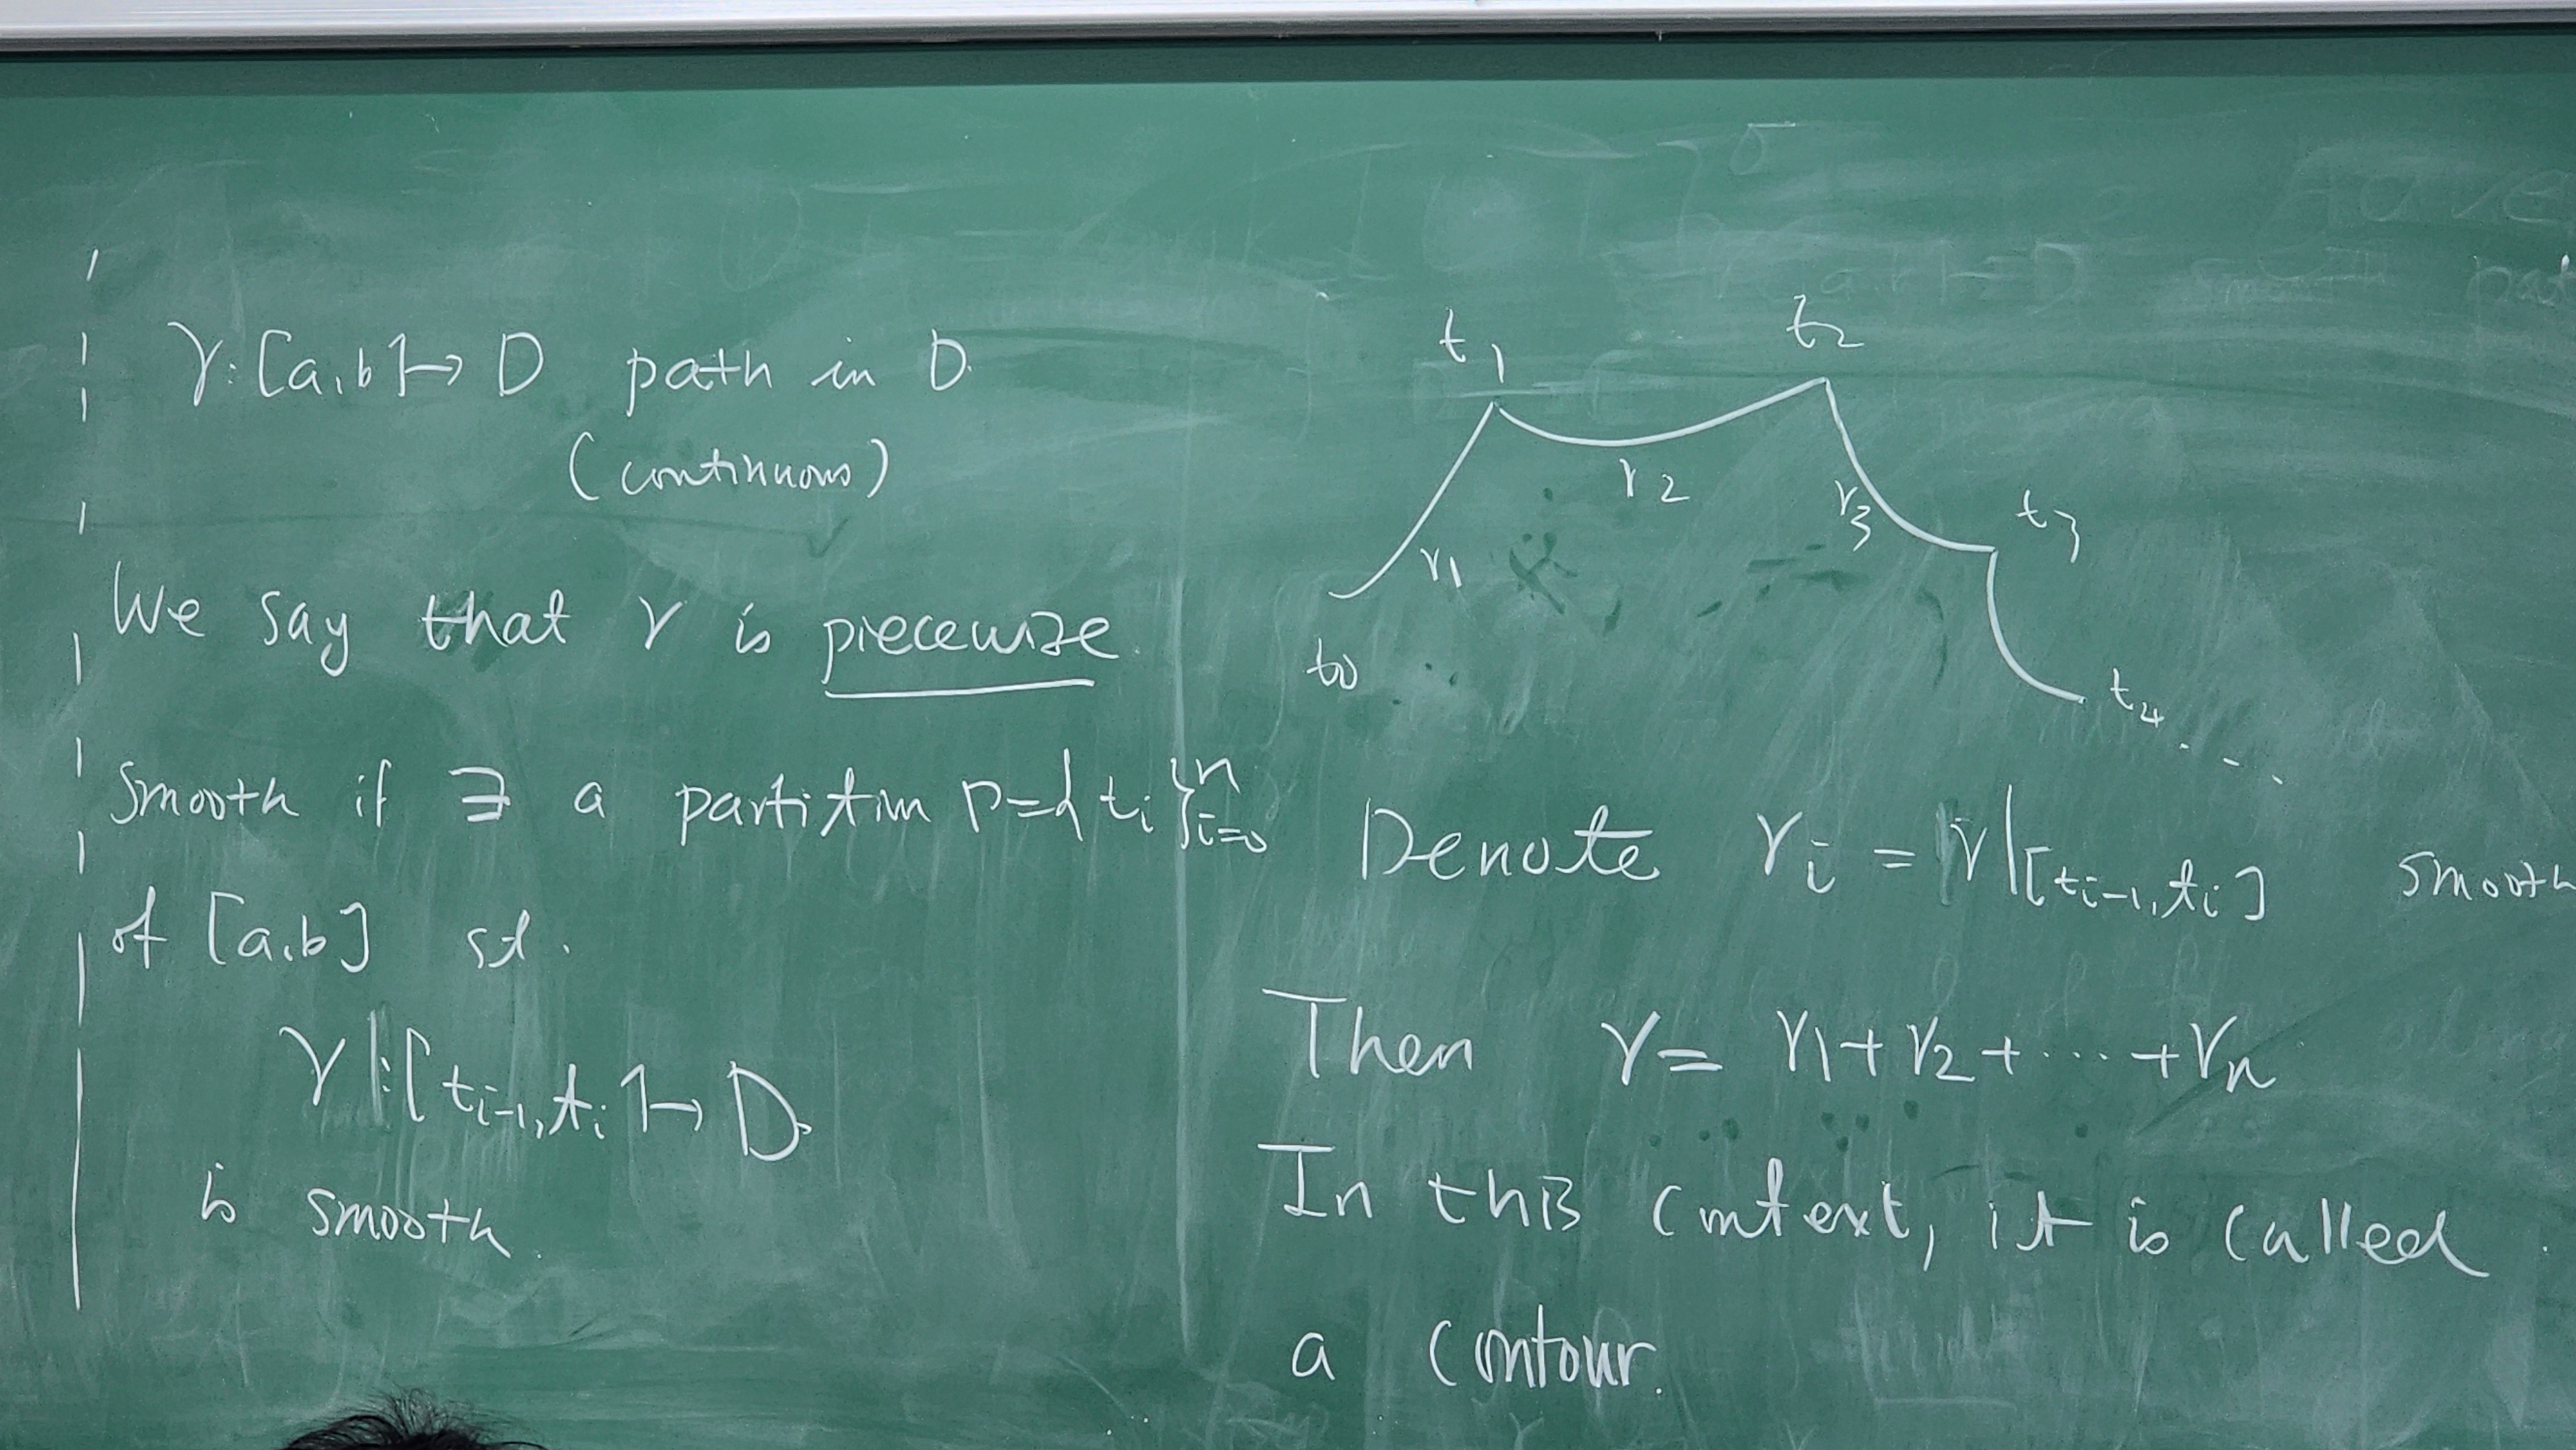 γ: [a,b] ↦ D path in D.
(continuous)
We say that γ is piecewise
smooth if ∃ a partition P={t_i}_{i=0}^n
of [a,b] st.
γ|:[t_{i-1}, t_i] ↦ D.
is smooth.
t_1 t_2
γ_2
γ_3 t_3
γ_1
t_0
t_4 ...
Denote γ_i = γ|_{[t_{i-1}, t_i]} smooth
Then γ = γ_1 + γ_2 + ···· + γ_n.
In this context, it is called
a contour.